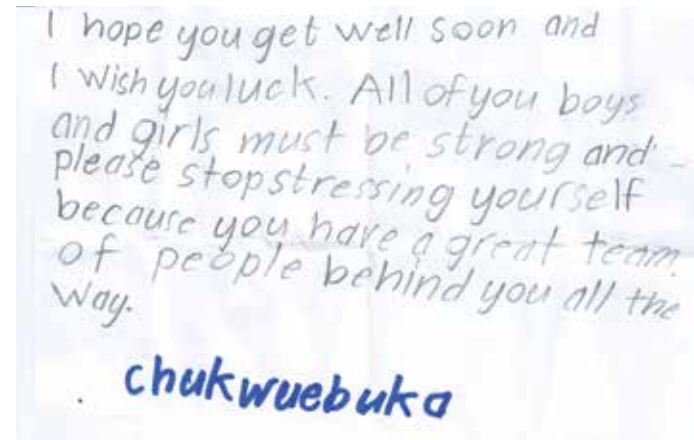 I hope you get well soon and
I wish you luck. All of you boys
and girls must be strong and
please stop stressing yourself
because you have a great team
of people behind you all the
way.
chukwuebuka